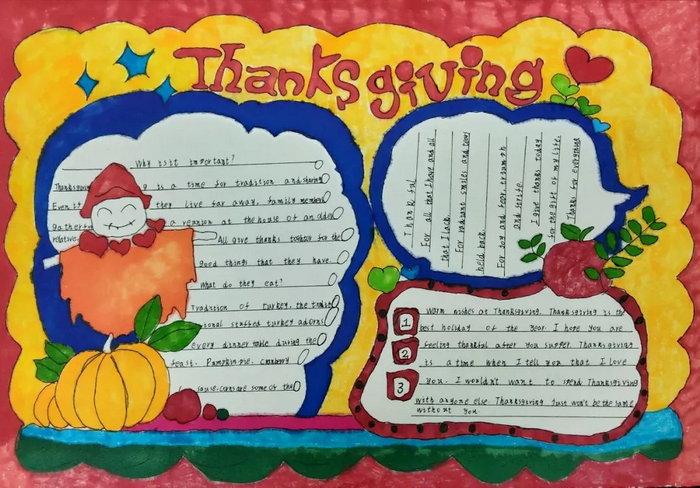 Thanksgiving
Why isit important?
Thanksgiving is a time for tradition and sharing
Even if they live far away, family members
gather for a reunion at the house of an older
relative. All give thanks together for the
good things that they have.
What do they eat?
Tradition of turkey, the tradit
ional stuffed turkey adorns
every dinner table during the
feast. Pumpkin pie, cranberry
sause. corn are some of the
Thankful
For all that I have and all
that I lack
For radiant smiles and tears
held back
For joy and tears triumph
and strife
I give thanks today
for the gift of my life.
Thanks for everything
1 Warm wishes at Thanksgiving. Thanksgiving is the
best holiday of the year. I hope you are
2 feeling thankful after you supper. Thanksgiving
is a time when I tell you that I love
3 you. I wouldn't want to spend Thanksgiving
with anyone else Thanksgiving Just won't be the same
without you